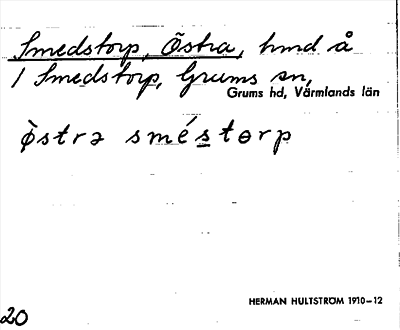 Smedstorp, Östra, hmd å
1 Smedstorp, Grums sn,
Grums hd, Värmlands län
ø̀strə sméstɵrp
HERMAN HULTSTRÖM 1910–12
20